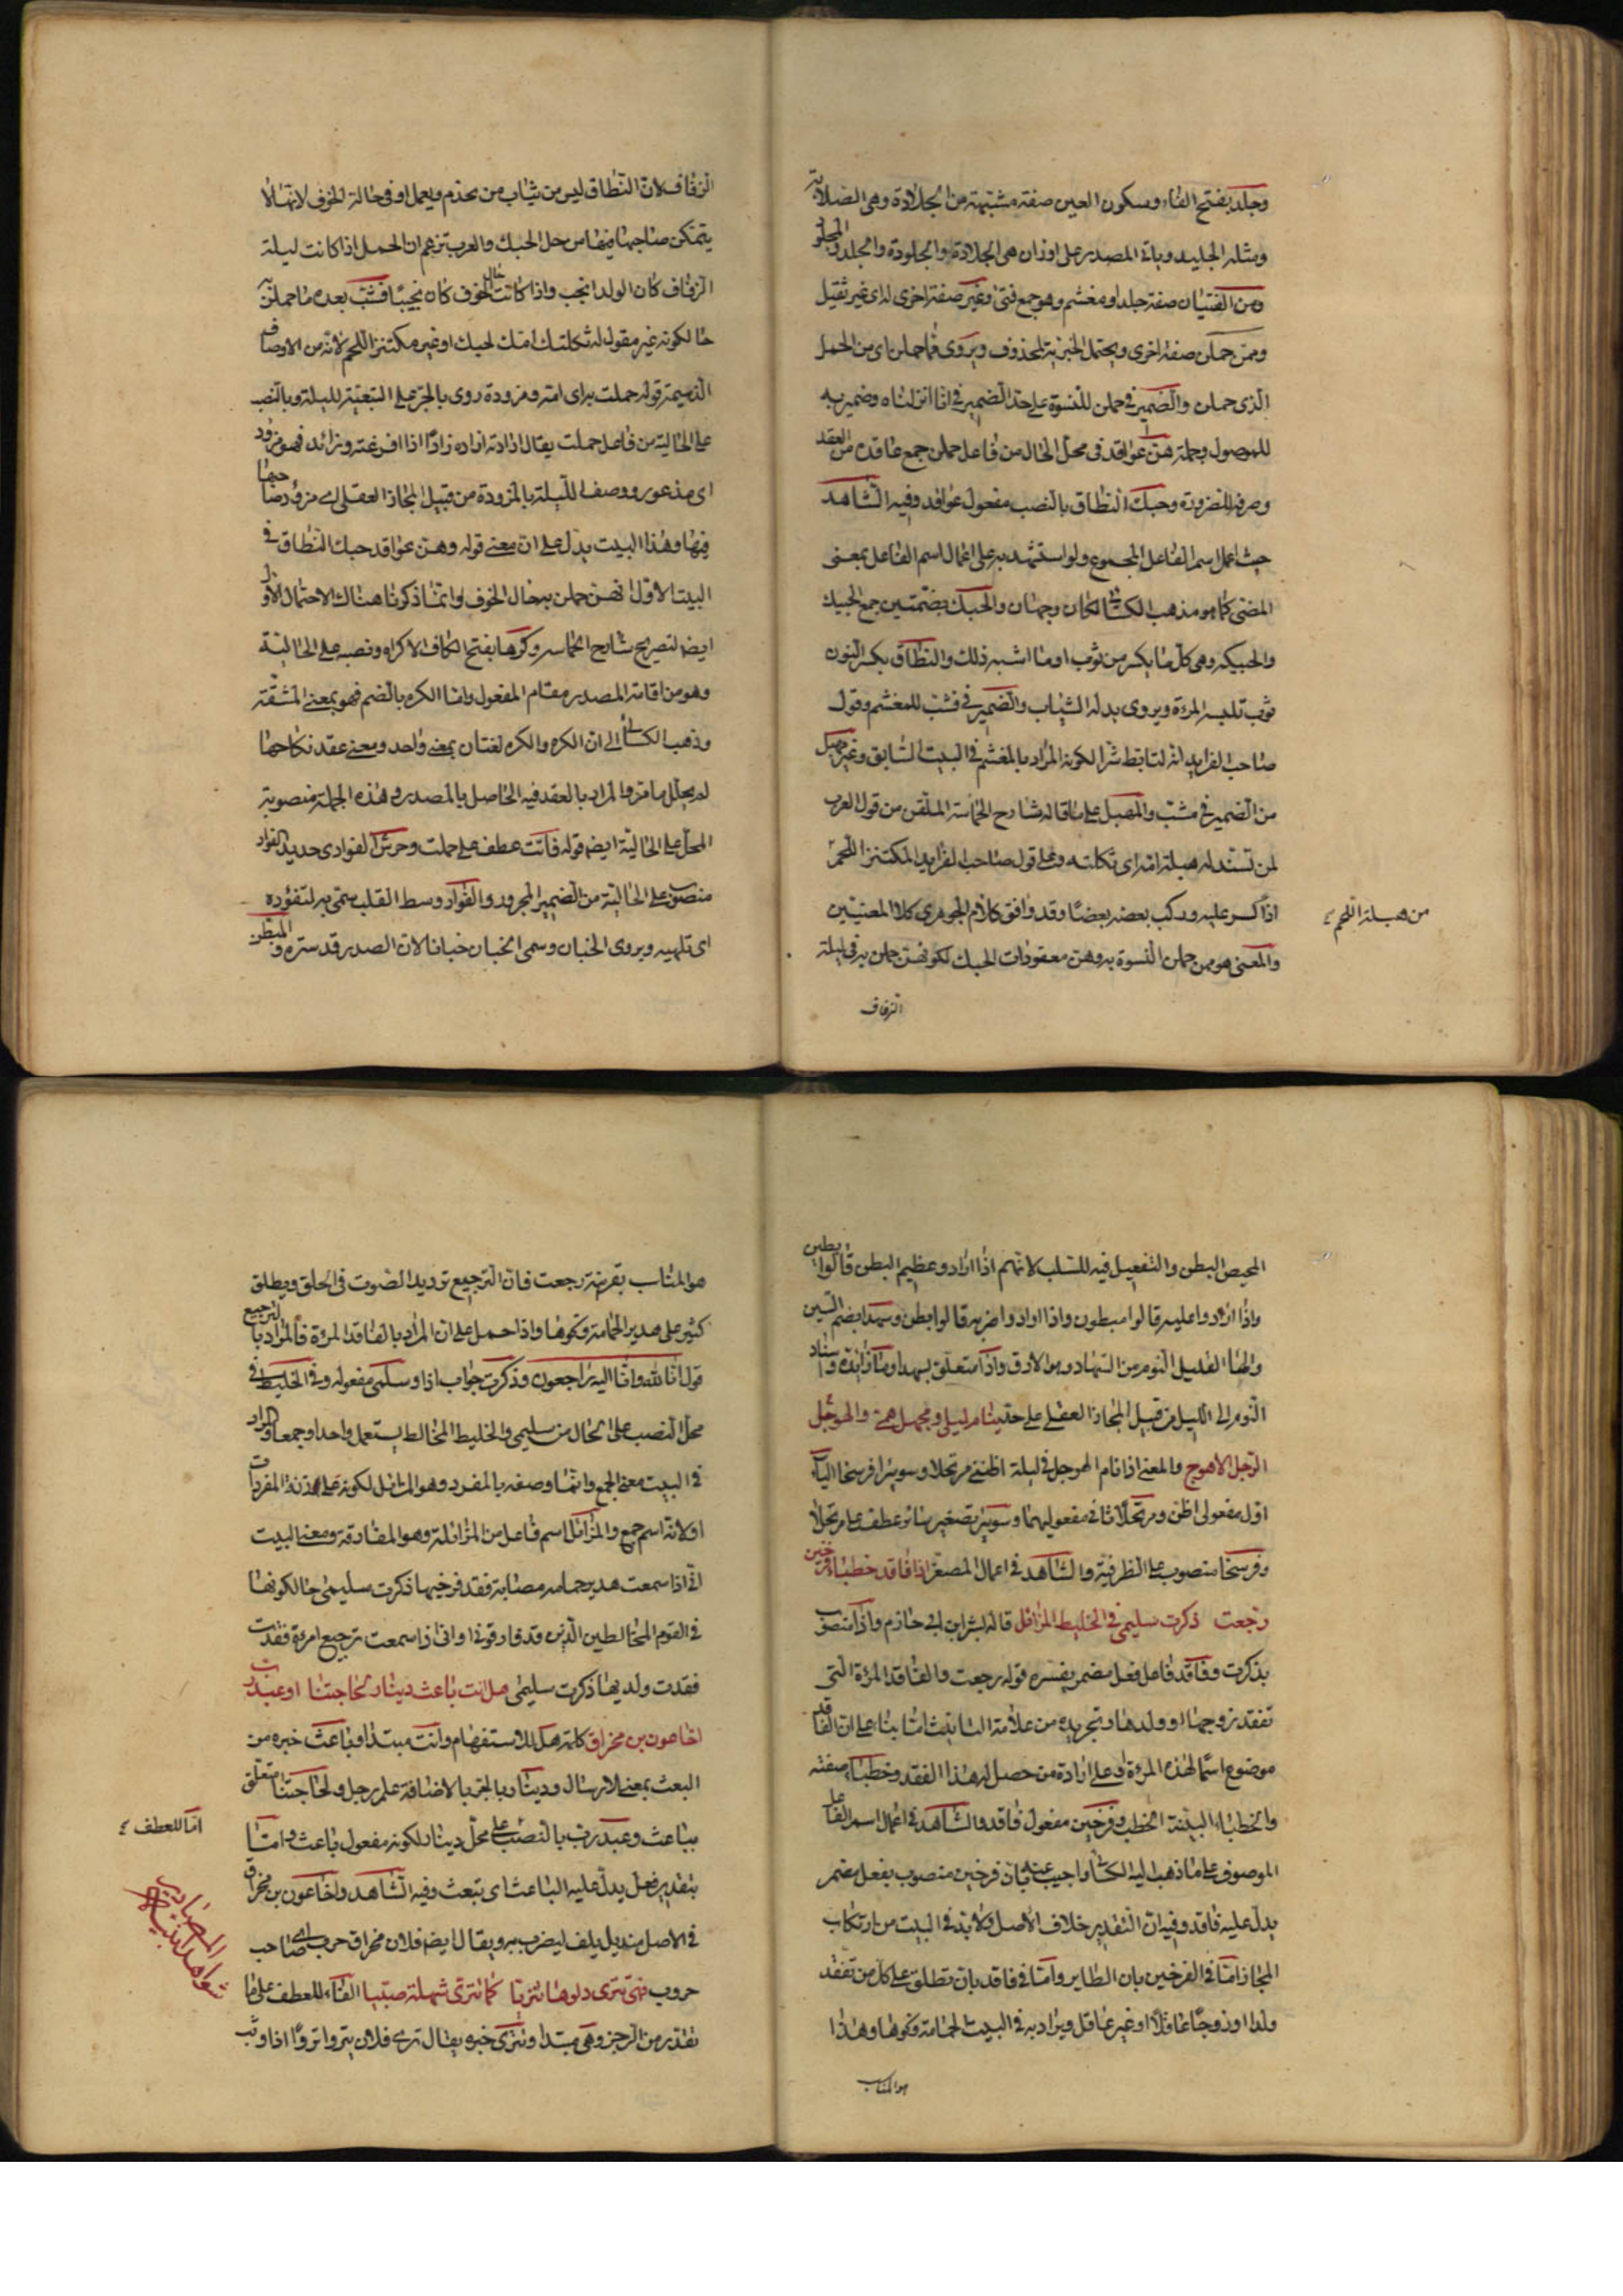 وجلد بفتح الفاء وسكون العين صفة مشبهة من الجلادة وهي الصلابة
ومثله الجليد وياتي المصدر على اوزان هي الجلادة والجلودة والجلد والمجلود
ومن الفتيان صفة جلد او مغشم وهو جمع فتى وغير صفة اخرى له اى غير ثقيل
وممن حملن صفة اخرى ويحتمل الخبرية لمحذوف ويروى فما حملن اى من الحمل
الذى حملن والضمير في حملن للنسوة على حد الضمير في انا انزلناه وضمير به
للموصول وجملة هن عواقد في محل الحال من فاعل حملن جمع عاقدة من العقد
وصرفه للضرورة وحبك النطاق بالنصب مفعول عواقد وفيه الشاهد
حيث اعمل اسم الفاعل المجموع ولو استشهد به على اعمال اسم الفاعل بمعنى
المضى كما هو مذهب الكسائي لكان وجها والحبك بضمتين جمع الحبيك
والحبيكة وهى كل ما يكسر من ثوب او ما اشبه ذلك والنطاق بكسر النون
ثوب تلبسه المرءة ويروى بدله الثياب والضمير في فشب للمغشم وقول
صاحب الفرايد انه لتابط شرا لكونه المراد بالمغشم في البيت السابق وغير مهبل
من الضمير في مشب والمهبل على ما قاله شارح الحماسة المتلقن من قول العرب
لمن تستند له هبلته امه اى ثكلته وعلى قول صاحب الفرايد المكتنز اللحم
من هبلة اللحم
اذا كسر عليه وركب بعضه بعضا وقد وافق كلام الجوهرى كلا المعنيين
والمعنى هو ممن حملن النسوة به وهن معقودات الحبك لكونهن حملن به في ليلة
الزفاف
الزفاف لان النطاق ليس من ثياب من يخدم ويعمل او في حالة الخوف لانها لا
يتمكن صاحبها فيها من حل الحبك والعرب تزعم ان الحمل اذا كانت ليلة
الزفاف كان الولد انجب واذا كانت حال الخوف كان نجيبا فشب بعده ما حملن به
حالكونه غير مقول له ثكلتك امك لحبك او غير مكتنز اللحم لانه من الاوصاف
الذميمة قوله حملت به اى امه ومزودة روى بالجر على التبعية لليلة وبالنصب
على الحالية من فاعل حملت يقال اذادته ازاده زادا اذا افزعته وزائد فهو مزود
اى مذعور ووصف الليلة بالمزودة من قبيل المجاز العقلى اى مزود صاحبها
فيها وهذا البيت يدل على ان معنى قوله وهن عواقد حبك النطاق في
البيت الاول انهن حملن به حال الخوف وانما ذكرنا هناك الاحتمال الاول
ايضا لتصريح شارح الحماسة وكرها بفتح الكاف الاكراه ونصبه على الحالية
وهو من اقامة المصدر مقام المفعول واما الكره بالضم فهو بمعنى المشقة
وذهب الكسائي الى ان الكره والكره لغتان بمعنى واحد ومعنى عقد نكاحها
لم يحلل ما مر والمراد بالعقد فيه الحاصل بالمصدر وهذه الجملة منصوبة
المحل على الحالية ايضا قوله فاتت عطف على حملت وحوش الفواد اى حديد الفواد
منصوب على الحالية من الضمير المجرور والفواد وسط القلب سمى به لتفؤده
اى تلهبه ويروى الجنان وسمى الجنان جنانا لان الصدر قد ستره والمبطن
الخميص البطن والتفعيل فيه للسلب لانهم اذا ارادوا عظيم البطن قالوا بطين
واذا ارادوا عليه قالوا مبطون واذا ارادوا ضربه قالوا بطن وسهدا بضم السين
والهاء القليل النوم من السهاد وهو الارق واذا متعلق بسهدا وما زائدة واسناد
النوم الى الليل من قبيل المجاز العقلى على حد ينام ليلى ومجهل همى والهوجل
الرجل الاهوج والمعنى اذا نام الهوجل في ليلة اظننى مرتحلا وسويرا فرسخا الياء
اول مفعولى اظن ومرتحلا ثاني مفعوليهما وسويرا تصغير سائر عطف على مرتحلا
وفرسخا منصوب على الظرفية والشاهد في اعمال المصغر اذا فاقد خطباء فرخين
رجعت ذكرت سليمى في الخليط المزائل قاله بشر ابن ابى حازم واذا منصوب
بذكرت وفاقد فاعل فعل مضمر يفسره قوله رجعت والفاقد المرءة التى
تفقد زوجها او ولدها وتجريده من علامة التانيث اما بناء على ان الفاقد
موضوع اسما لهذه المرءة وعلى ارادة من حصل له هذا الفقد وخطباء صفته
والخطباء البينة الخطب وفرخين مفعول فاقد والشاهد في اعمال اسم الفاعل
الموصوف على ما ذهب اليه الكسائي واجيب عنه بان فرخين منصوب بفعل مضمر
يدل عليه فاقد وفيه ان التقدير خلاف الاصل ولا بد في البيت من ارتكاب
المجاز اما في الفرخين بان الطاير واما في فاقد بان تطلق على كل من تفقد
ولدا او زوجا عاقلا او غير عاقل ويراد به في البيت الحمامة ونحوها وهذا
هو المناسب
هو المناسب بقرينة رجعت فان الترجيع ترديد الصوت في الحلق ويطلق
كثير على هدير الحمامة ونحوها واذا حمل على ان المراد بالفاقد المرءة فالمراد بالترجيع
قول انا لله وانا اليه راجعون وذكرت جواب اذا وسلمى مفعوله وفي الخليط في
محل النصب على الحال من سليمى والخليط المخالط يستعمل واحدا وجمعا والمراد
في البيت معنى الجمع وانما وصفه بالمفرد وهو المزائل لكونه على زنة المفردات
او لانه اسم جمع والمزائل اسم فاعل من المزائلة وهو المفارقة ومعنى البيت
انى اذا سمعت هدير حمامه مصابة بفقد فرخيها ذكرت سليمى حالكونها
في القوم المخالطين الذين قد فارقونى او انى اذا سمعت ترجيع امرءة فقدت
فقدت ولديها ذكرت سليمى هل انت باعث دينار لحاجتنا او عبد رب
اخا عون بن مخراق كلمة هل للاستفهام وانت مبتدا وباعث خبره من
البعث بمعنى الارسال ودينار بالجر بالاضافة علم رجل ولحاجتنا متعلق
بباعث وعبد رب بالنصب على محل دينار لكونه مفعول باعث واما
اما للعطف
بتقدير فعل يدل عليه الباعث اى تبعث وفيه الشاهد واخا عون بن مخراق
في الاصل منديل يلف ليضرب به ويقال ايضا فلان مخراق حرب اى صاحب
حروب فهى تنزى دلوها تنزيا كما تنزى شهلة صبيا الفاء للعطف على ما
شواهد ابنية المصادر
تقدم من الرجز وهى مبتدا وتنزى خبره يقال نزى فلان ينزو نزوا اذا وثب